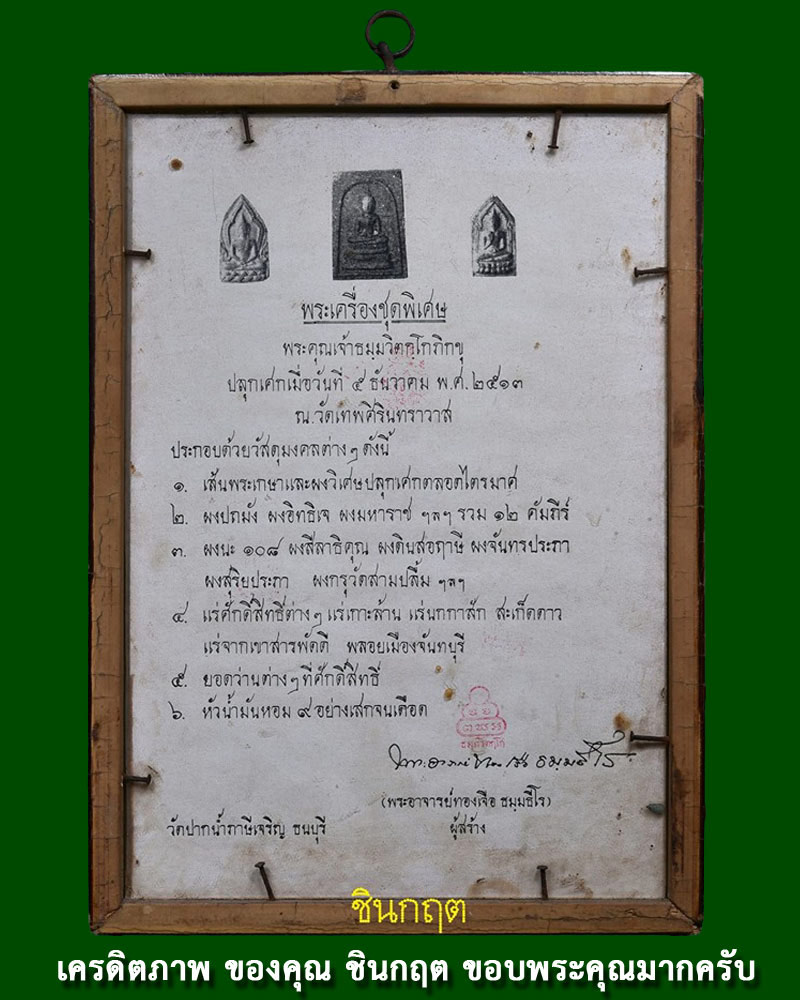 พระเครื่องชุดพิเศษ
พระคุณเจ้าธมฺมวิตกฺโกภิกขุ
ปลุกเศกเมื่อวันที่ ๕ ธันวาคม พ.ศ.๒๕๑๓
ณ.วัดเทพศิรินทราวาส
ประกอบด้วยวัสดุมงคลต่างๆ ดังนี้
๑. เส้นพระเกษาและผงวิเศษปลุกเศกตลอดไตรมาศ
๒. ผงปถมัง ผงอิทธิเจ ผงมหาราช ฯลฯ รวม ๑๒ คัมภีร์
๓. ผงนะ ๑๐๘ ผงสีลาธิคุณ ผงดินสอฤาษี ผงจันทรประภา
ผงสุริยประภา ผงกรุวัดสามปลื้ม ฯลฯ
๔. แร่ศักดิ์สิทธิ์ต่างๆ แร่เกาะล้าน แร่นกกาสัก สะเก็ดดาว
แร่จากเขาสารพัดดี พลอยเมืองจันทบุรี
๕. ยอดว่านต่างๆ ที่ศักดิ์สิทธิ์
๖. หัวน้ำมันหอม ๙ อย่างเสกจนเดือด
ธมฺมธีโร
(พระอาจารย์ทองเจือ ธมฺมธีโร)
วัดปากน้ำภาษีเจริญ ธนบุรี ผู้สร้าง
ชินกฤต
เครดิตภาพ ของคุณ ชินกฤต ขอบพระคุณมากครับ